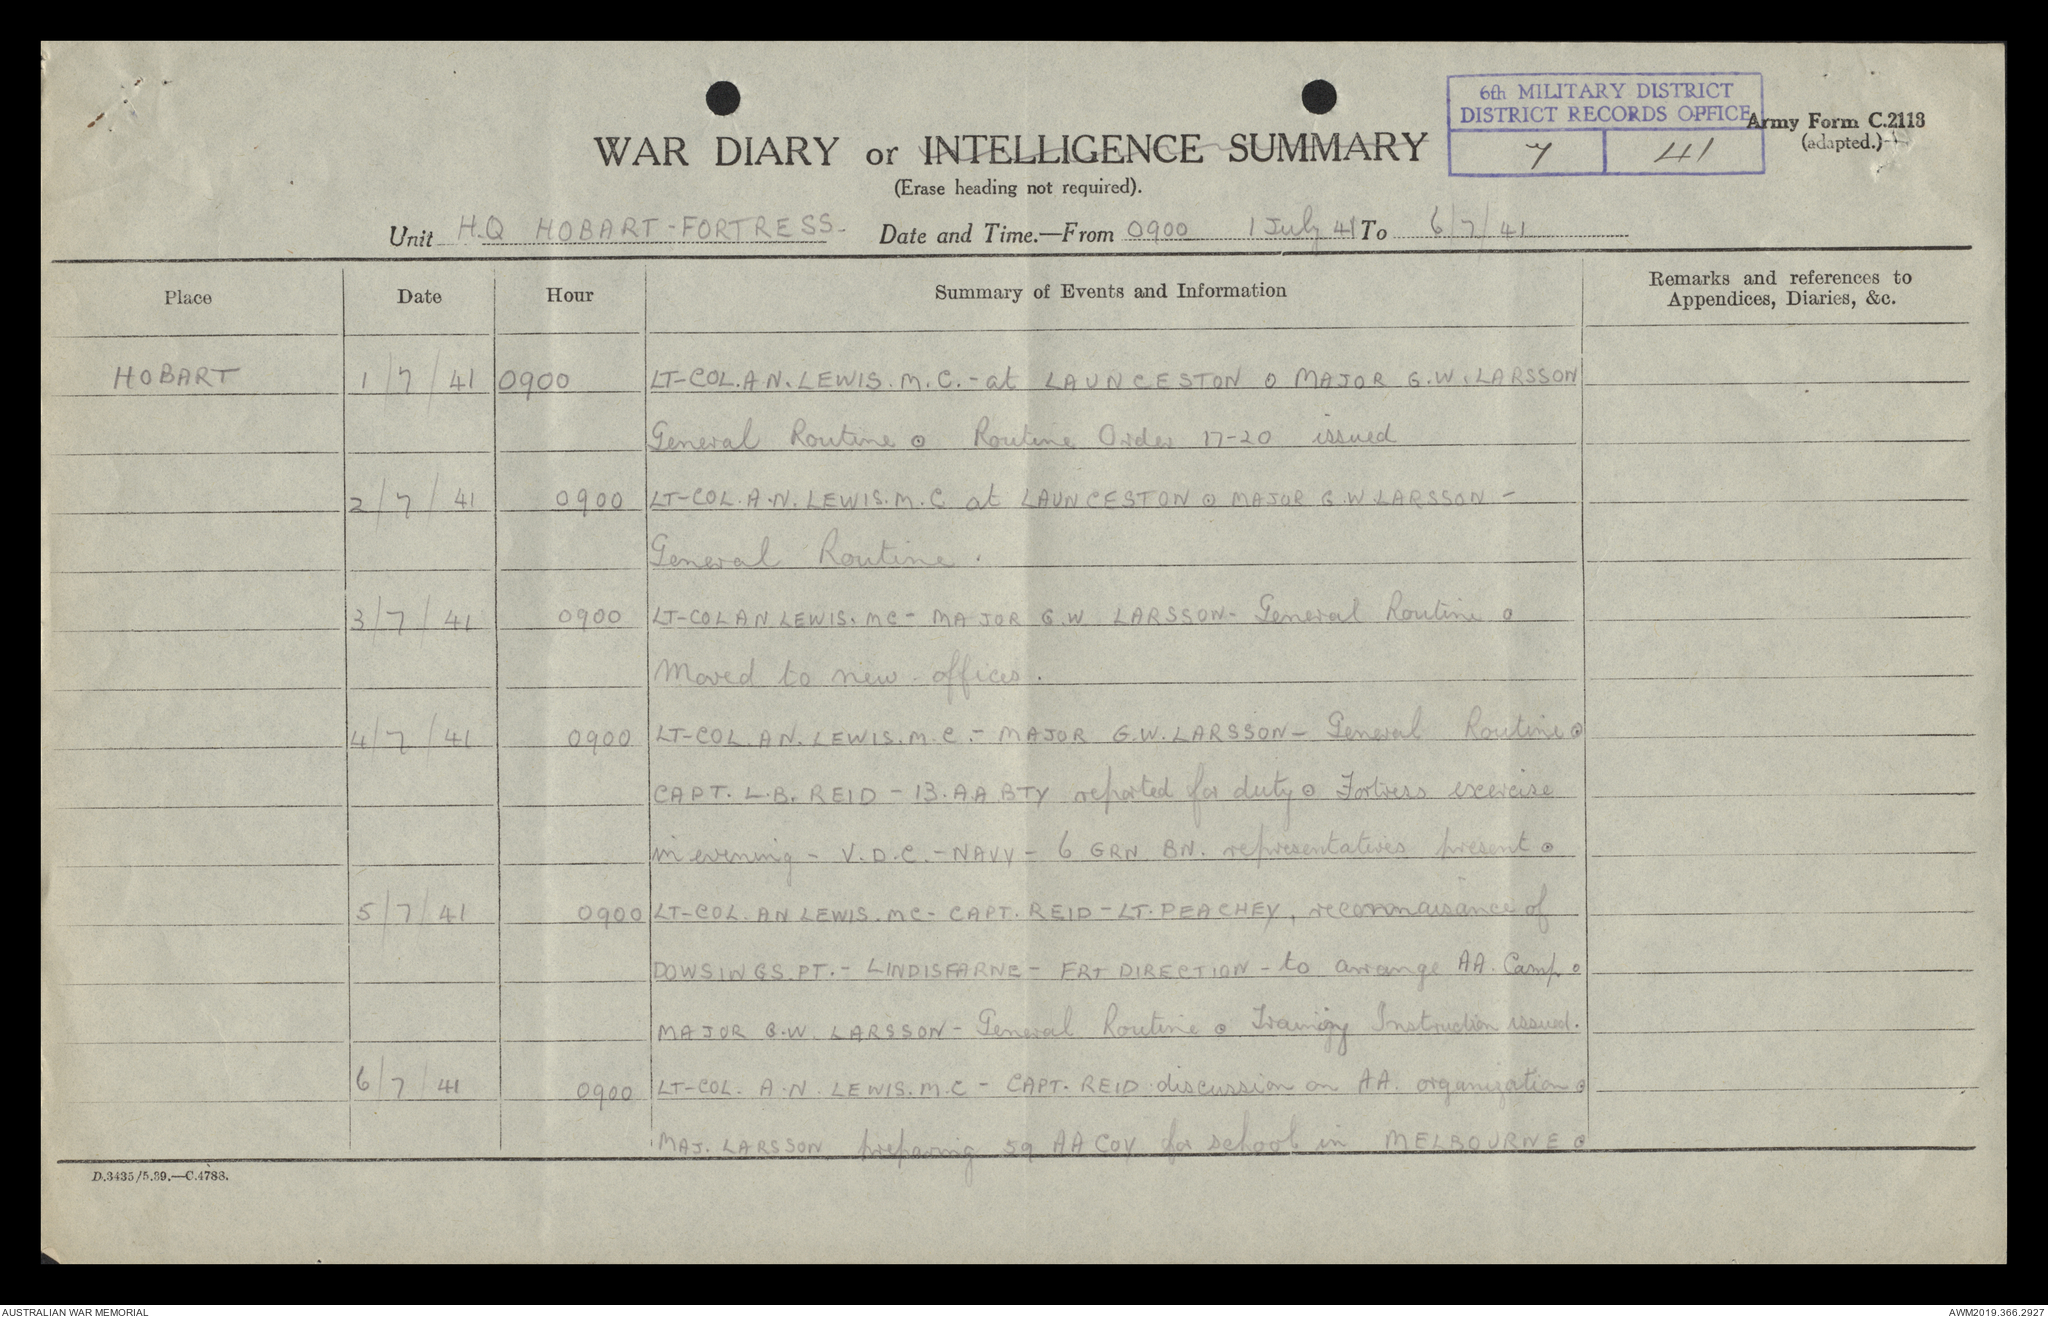 6th MILITARY DISTRICT
DISTRICT RECORDS OFFICE
7 41
Army Form C.2118
(adapted.)
WAR DIARY or INTELLIGENCE SUMMARY
(Erase heading not required).
Unit H.Q HOBART-FORTRESS- Date and Time.—From 0900 1 July 41 To 6/7/41
Place Date Hour Summary of Events and Information Remarks and references to
Appendices, Diaries, &c.
HOBART 1/7/41 0900 LT-COL.A.N.LEWIS.M.C.-at LAUNCESTON o MAJOR G.W.LARSSON
General Routine o Routine Order 17-20 issued
2/7/41 0900 LT-COL.A.N.LEWIS.M.C at LAUNCESTON o MAJOR G.W.LARSSON -
General Routine.
3/7/41 0900 LT-COL AN LEWIS. MC - MAJOR G.W LARSSON- General Routine o
Moved to new offices.
4/7/41 0900 LT-COL.AN.LEWIS.M.C.- MAJOR G.W.LARSSON- General Routine o
CAPT. L.B. REID - 13.AA BTY reported for duty o Fortress exercise
in evening - V.D.C.-NAVY- 6 GRN BN. representatives present o
5/7/41 0900 LT-COL. AN LEWIS. MC- CAPT. REID - LT. PEACHEY, reconnaisance of
DOWSINGS PT.- LINDISFARNE - DIRECTION - to arrange AA. Camp o
MAJOR G.W. LARSSON- General Routine o Training Instruction issued.
6/7/41 0900 LT-COL. A.N. LEWIS.M.C - CAPT. REID discussion on AA. organization o
MAJ. LARSSON preparing 59 AA COY for school in MELBOURNE o
D.3435/5.39.—C.4788.
AUSTRALIAN WAR MEMORIAL
AWM2019.366.2927